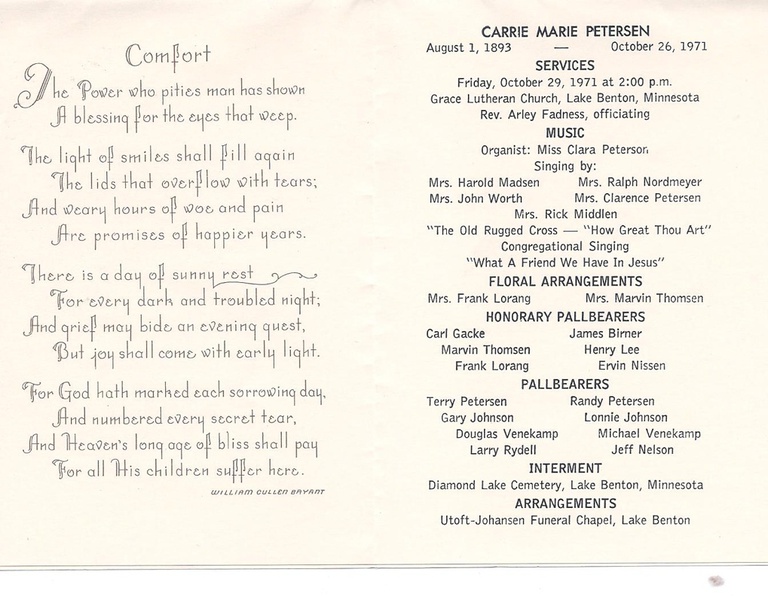 Comfort
The Power who pities man has shown
A blessing for the eyes that weep.
The light of smiles shall fill again
The lids that overflow with tears;
And weary hours of woe and pain
Are promises of happier years.
There is a day of sunny rest
For every dark and troubled night;
And grief may bide an evening guest,
But joy shall come with early light.
For God hath marked each sorrowing day,
And numbered every secret tear,
And Heaven's long age of bliss shall pay
For all His children suffer here.
WILLIAM CULLEN BRYANT
CARRIE MARIE PETERSEN
August 1, 1893 — October 26, 1971
SERVICES
Friday, October 29, 1971 at 2:00 p.m.
Grace Lutheran Church, Lake Benton, Minnesota
Rev. Arley Fadness, officiating
MUSIC
Organist: Miss Clara Peterson
Singing by:
Mrs. Harold Madsen Mrs. Ralph Nordmeyer
Mrs. John Worth Mrs. Clarence Petersen
Mrs. Rick Middlen
"The Old Rugged Cross — "How Great Thou Art"
Congregational Singing
"What A Friend We Have In Jesus"
FLORAL ARRANGEMENTS
Mrs. Frank Lorang Mrs. Marvin Thomsen
HONORARY PALLBEARERS
Carl Gacke James Birner
Marvin Thomsen Henry Lee
Frank Lorang Ervin Nissen
PALLBEARERS
Terry Petersen Randy Petersen
Gary Johnson Lonnie Johnson
Douglas Venekamp Michael Venekamp
Larry Rydell Jeff Nelson
INTERMENT
Diamond Lake Cemetery, Lake Benton, Minnesota
ARRANGEMENTS
Utoft-Johansen Funeral Chapel, Lake Benton